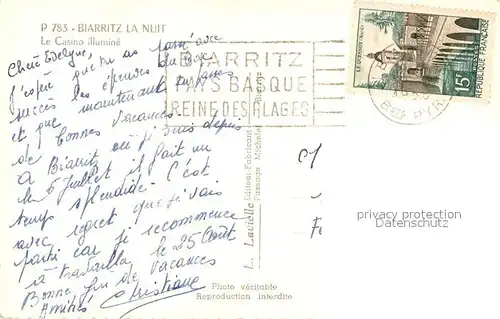 P 783 - BIARRITZ LA NUIT
Le Casino illuminé
Chère Edelyne,
J'espère que tu as passé avec
succès les épreuves du Bac
et que maintenant tu passes
de bonnes vacances.
à Biarritz où je suis depuis
le 5 Juillet il fait un
temps splendide. C'est
avec regret que je vais
partir car je recommence
à travailler le 25 Août
Bonne fin de vacances
Amitiés Christiane
BIARRITZ
PAYS BASQUE
REINE DES PLAGES
LE QUESNOY (Nord)
15F
REPUBLIQUE FRANÇAISE
POSTES
Bses PYR
L. Lavielle Edition Fabricant
Passage Michelet Biarritz
privacy protection
Datenschutz
Photo véritable
Reproduction interdite